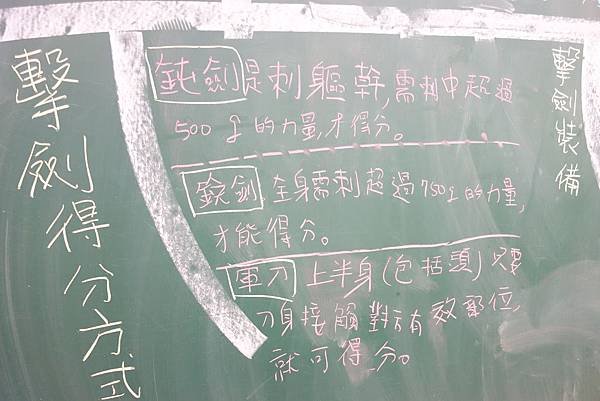 擊劍得分方式
鈍劍是刺軀幹,需刺中超過
500g的力量,才得分。
銳劍 全身需刺超過750g的力量,
才能得分。
軍刀 上半身(包括頭)只要
刀身接觸對方有效部位,
就可得分。
擊劍裝備